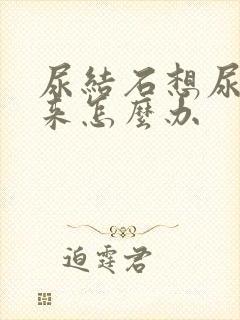 尿結石想尿
來怎麼办
迫霆君